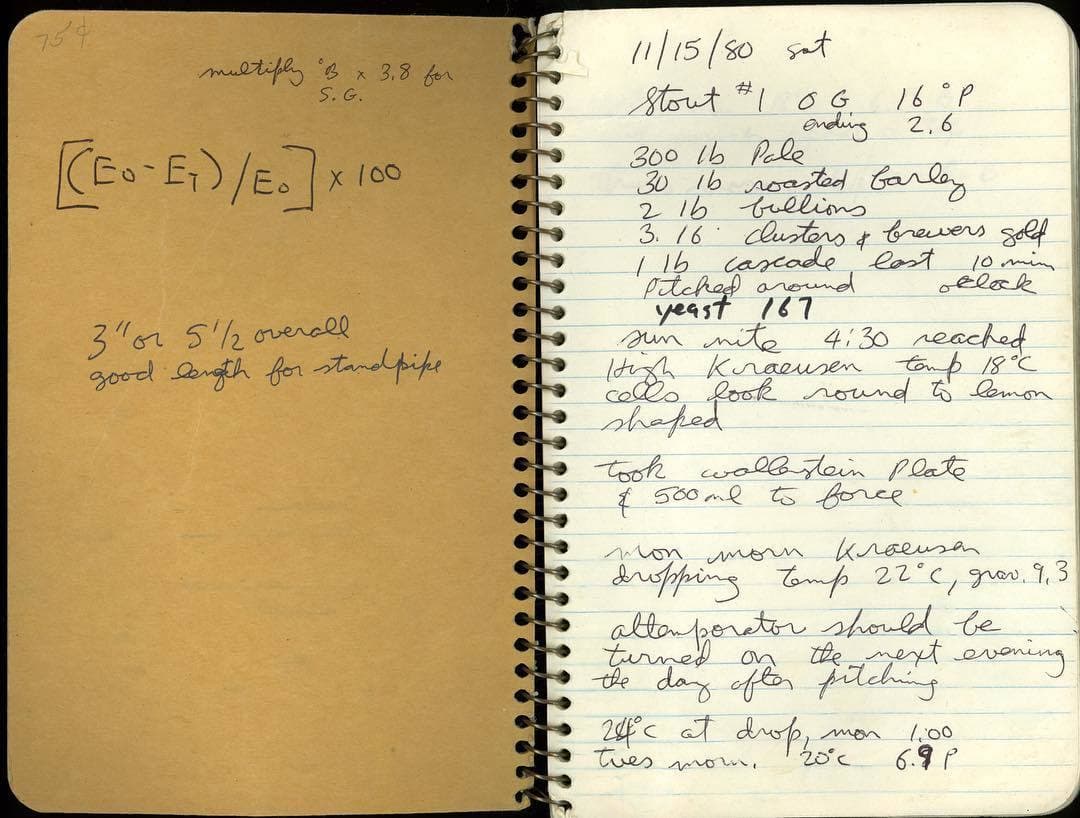 75¢
multiply °B x 3.8 for
S.G.
[(E₀-E₁)/E₀] x 100
3" or 5 1/2 overall
good length for standpipe
11/15/80 sat
Stout #1 OG 16°P
ending 2.6
300 lb Pale
30 lb roasted barley
2 lb bullions
3. 16 clusters & brewers gold
1 lb cascade last 10 min
Pitched around oclock
yeast 167
sun nite 4:30 reached
High Kraeusen temp 18°C
cells look round to lemon
shaped
took wallerstein Plate
& 500 ml to force
mon morn Kraeusen
dropping temp 22°C, grav. 9,3
attemporator should be
turned on the next evening
the day after pitching
24°C at drop, mon 1:00
tues morn. 20°C 6.9 P